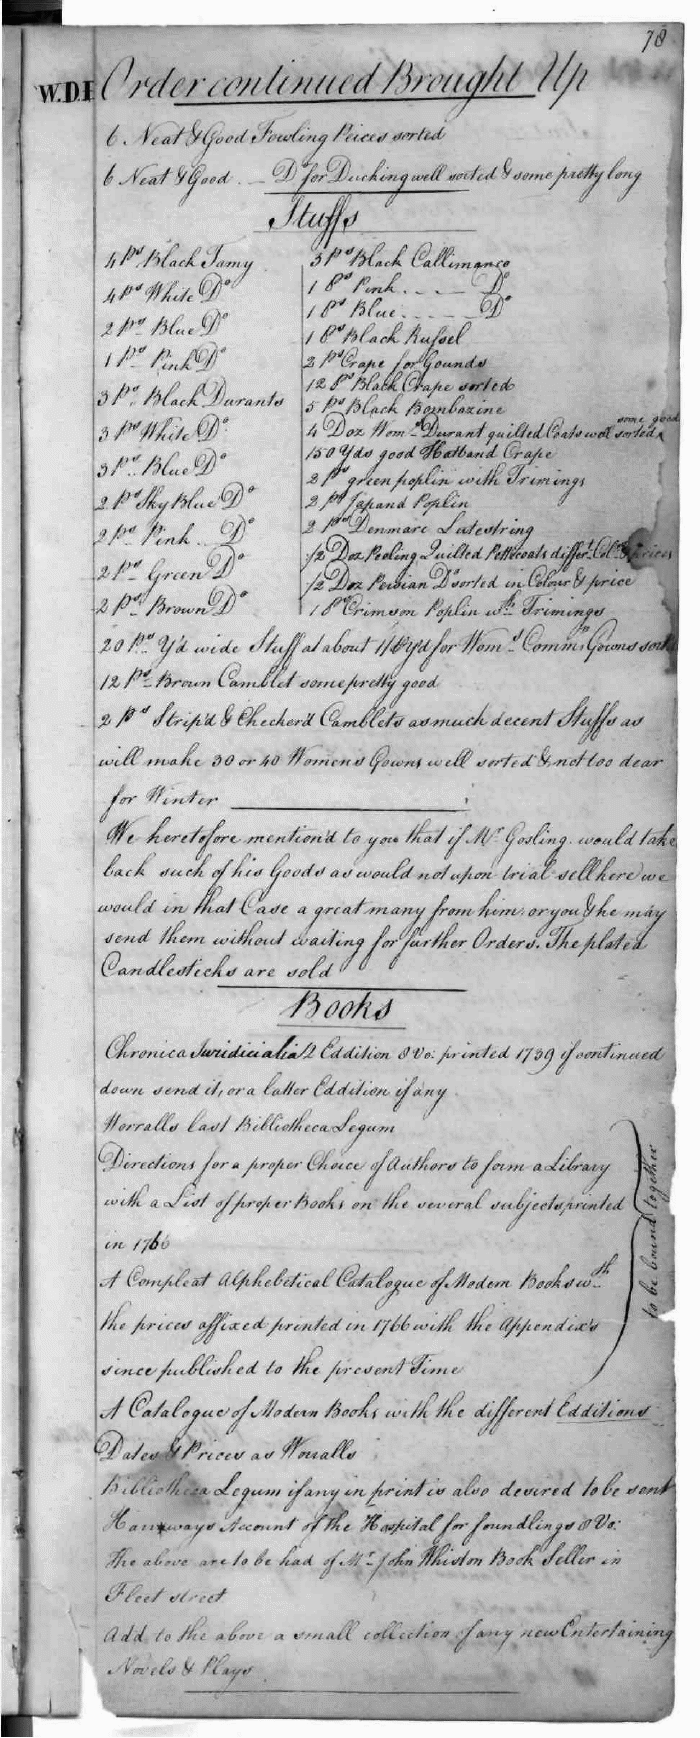 78
W.D.I Order continued Brought Up
6 Neat & Good Fowling Peices sorted
6 Neat & Good . _ Do for Ducking well sorted & some pretty long
Stuffs
4 Ps Black Tamy
4 Ps White Do
2 Ps Blue Do
1 Ps Pink Do
3 Ps Black Durants
3 Ps White Do
3 Ps Blue Do
2 Ps Sky Blue Do
2 Ps Pink .. Do
2 Ps Green Do
2 Ps Brown Do
3 Ps Black Callimanco
1 Ps Pink . . _ . Do
1 Ps Blue . . . . . Do
1 Ps Black Russel
2 Ps Crape for Gounds
12 Ps Black Crape sorted
5 Ps Black Bombazine
4 Doz Woms Durant quilted Coats well sorted ^ some good
150 Yds good Hatband Crape
2 Ps green poplin with Trimings
2 Ps Japand Poplin
2 Ps Denmarc Lutestring
1/2 Doz Peeling Quilted Pettecoats differt Cols & prices
1/2 Doz Persian Do sorted in Colour & price
1 Ps Crimson Poplin wth Trimings
20 Ps Y'd wide Stuff at about 1/6 Yd for Woms Commn Gowns
12 Ps Brown Camblet some pretty good
2 Ps Strip'd & Checker'd Camblets as much decent Stuffs as
will make 30 or 40 Womens Gowns well sorted & not too dear
for Winter
We heretofore mention'd to you that if Mr Gosling would take
back such of his Goods as would not upon trial sell here we
would in that Case a great many from him or you & he may
send them without waiting for further Orders. The plated
Candlesticks are sold
Books
Chronica Juridicialia 2 Eddition 8Vo: printed 1739 if continued
down send it, or a latter Eddition if any
Worralls last Bibliotheca Legum
Directions for a proper Choice of Authors to form a Library
with a List of proper Books on the several subjects printed
in 1766
A Compleat Alphebetical Catalogue of Modern Books wth
the prices affixed printed in 1766 with the Appendix's
since published to the present Time
to be bound together
A Catalogue of Modern Books with the different Edditions
Dates & Prices as Worralls
Bibliotheca Legum if any in print is also desired to be sent
Hanways Account of the Hospital for foundlings 8Vo:
The above are to be had of Mr John Whiston Book Seller in
Fleet street
Add to the above a small collection of any new Entertaining
Novels & Plays